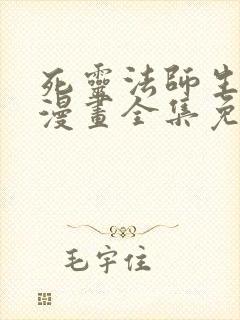 死靈法師生
漫畫全集免
毛宇住